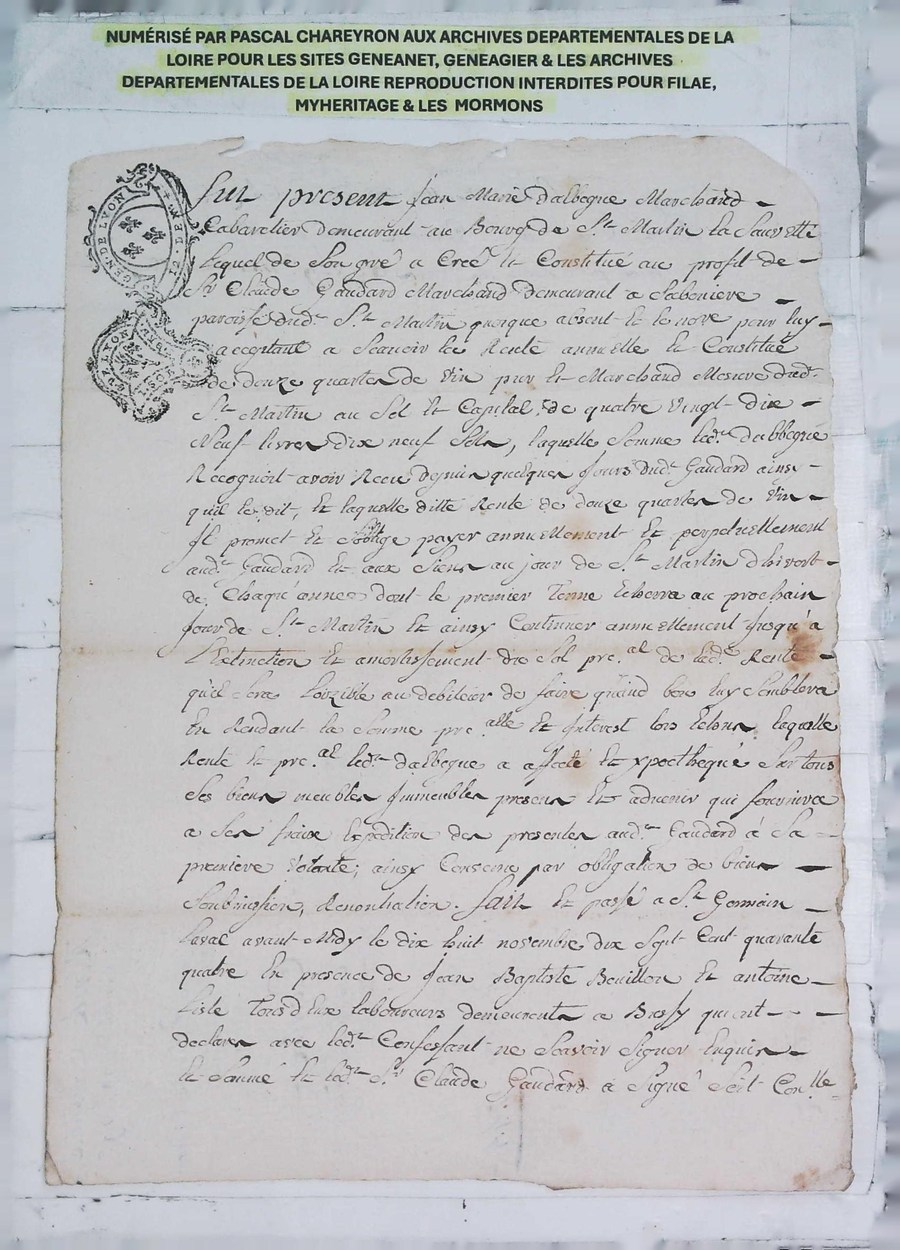 NUMÉRISÉ PAR PASCAL CHAREYRON AUX ARCHIVES DEPARTEMENTALES DE LA
LOIRE POUR LES SITES GENEANET, GENEAGIER & LES ARCHIVES
DEPARTEMENTALES DE LA LOIRE REPRODUCTION INTERDITES POUR FILAE,
MYHERITAGE & LES MORMONS
GEN DE LYON
Fut present Jean Marie Dalbegue Marchand
Cabaretier demeurant au Bourg de St. Martin la Sauvetté
Lequel de Son gré a Creé Et Constitué au profit de
Sr. Claude Gaudard Marchand demeurant a
paroisse dudt. St. Martin quoique absent Et le nore pour luy
acceptant a Scauoir la Rente annuelle Et Constitué
de douze quartes de Vin pur Et Marchand Mesure dudt.
St. Martin au Sol Et Capital de quatre Vingt dix
Neuf livres dix neuf Sols, laquelle Somme ledt. dalbegue
Recognoit avoir Receu depuis quelques Jours dudt. Gaudard ainsy
quil le dit, Et laquelle ditte Rente de douze quartes de Vin
Il promet Et Soblige payer annuellement Et perpetuellement
audt. Gaudard Et aux Siens au jour de St. Martin dhivert
de Chaque année dont le premier Terme Echerra au prochain
Jour de St. Martin Et ainsy Continuer annuellement Jusqu'a
Lextinction Et amortissement du Sol pre.al de ladt. Rente
quil Sera Loizible au debiteur de faire quand bon luy Semblera
En Rendant la Somme pre.alle Et Interest lors laquelle
Rente Et pre.al ledt. dalbegue a affecté Et ypocthequé Sur tous
Ses biens meubles Immeubles presens Et advenir qui fournira
a Ses fraix Expedition des presentes audt. Gaudard á Sa
premiere Volonté; ainsy Convenu par obligation de biens
Soubmission, Renontiation. Fait Et passé a St. Germain
Laval avant Midy le dix huit novembre dix Sept Cent quarante
quatre En presence de Jean Baptiste Bouillon Et antoine
Liste Tous d'Eux laboureurs demeurants a Bussy qui ont
declarés avec ledt. Confessant ne Scavoir Signer Enquis
Et Sommé Et ledt. Sr. Claude Gaudard a Signé Soit Con.lle